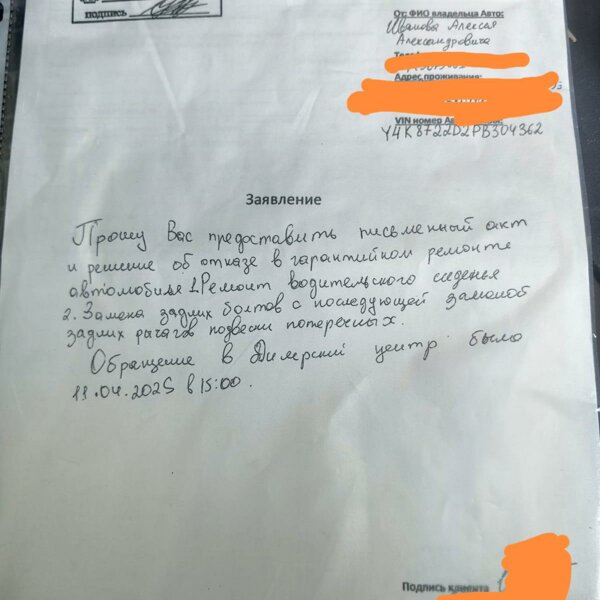 подпись
От: ФИО владельца Авто:
Иванова Алексея
Александровича
Адрес проживания:
VIN номер
Y4K8722D2PB304362
Заявление
Прошу Вас предоставить письменный акт
и решение об отказе в гарантийном ремонте
автомобиля 1.Ремонт водительского сиденья
2. Замена задних болтов с последующей заменой
задних рычагов подвески поперечных.
Обращение в Дилерский центр было
11.04.2025 в 15:00.
Подпись клиента